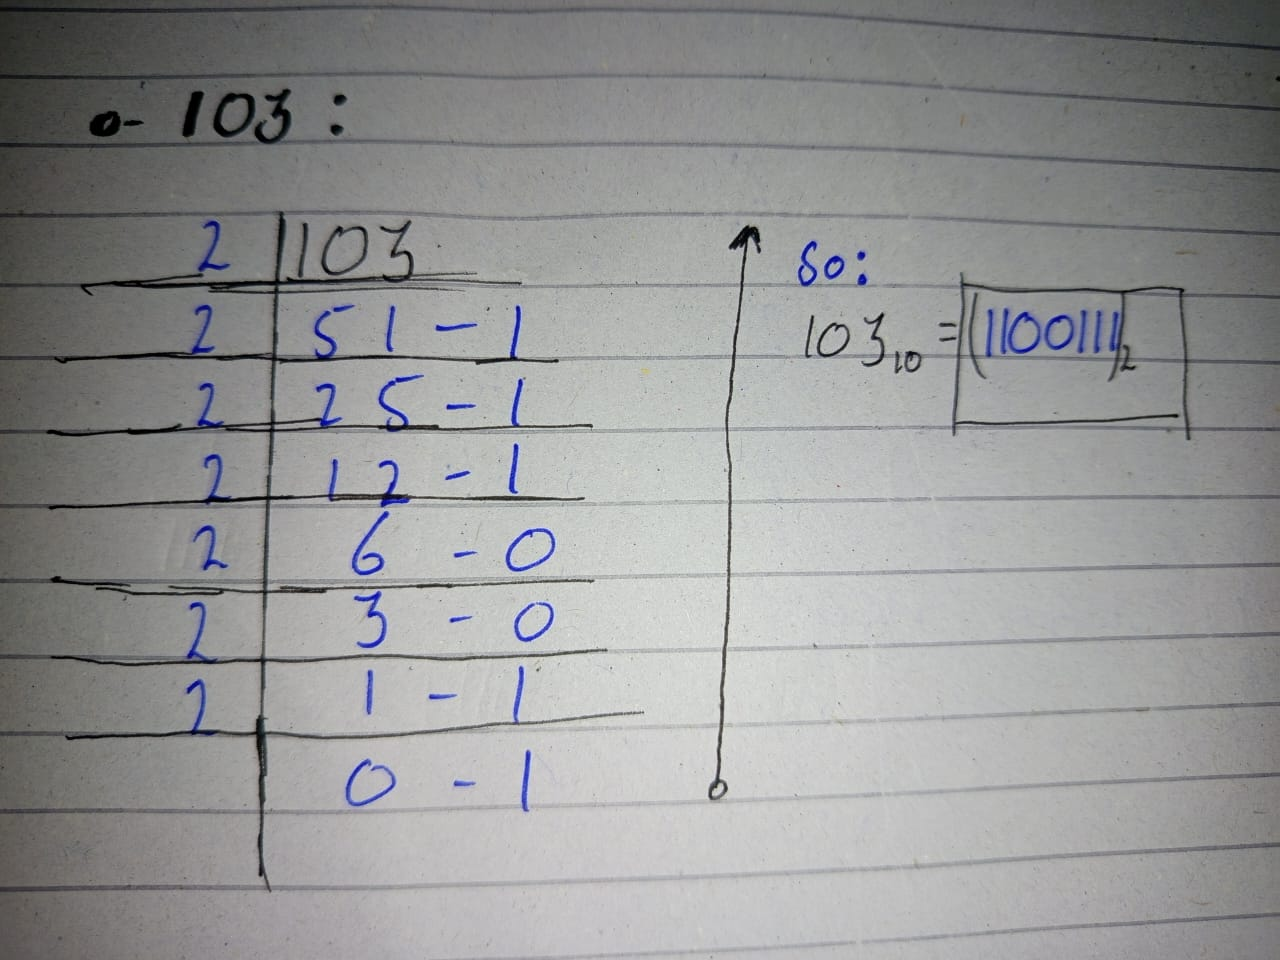 o- 103 :
2 | 103
2 | 51 - 1
2 | 25 - 1
2 | 12 - 1
2 | 6 - 0
2 | 3 - 0
2 | 1 - 1
0 - 1
So:
103₁₀ = (1100111)₂